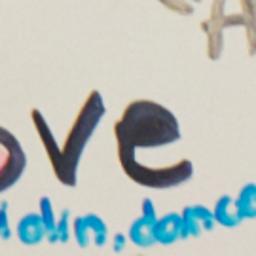 A
ove
iolin, dance